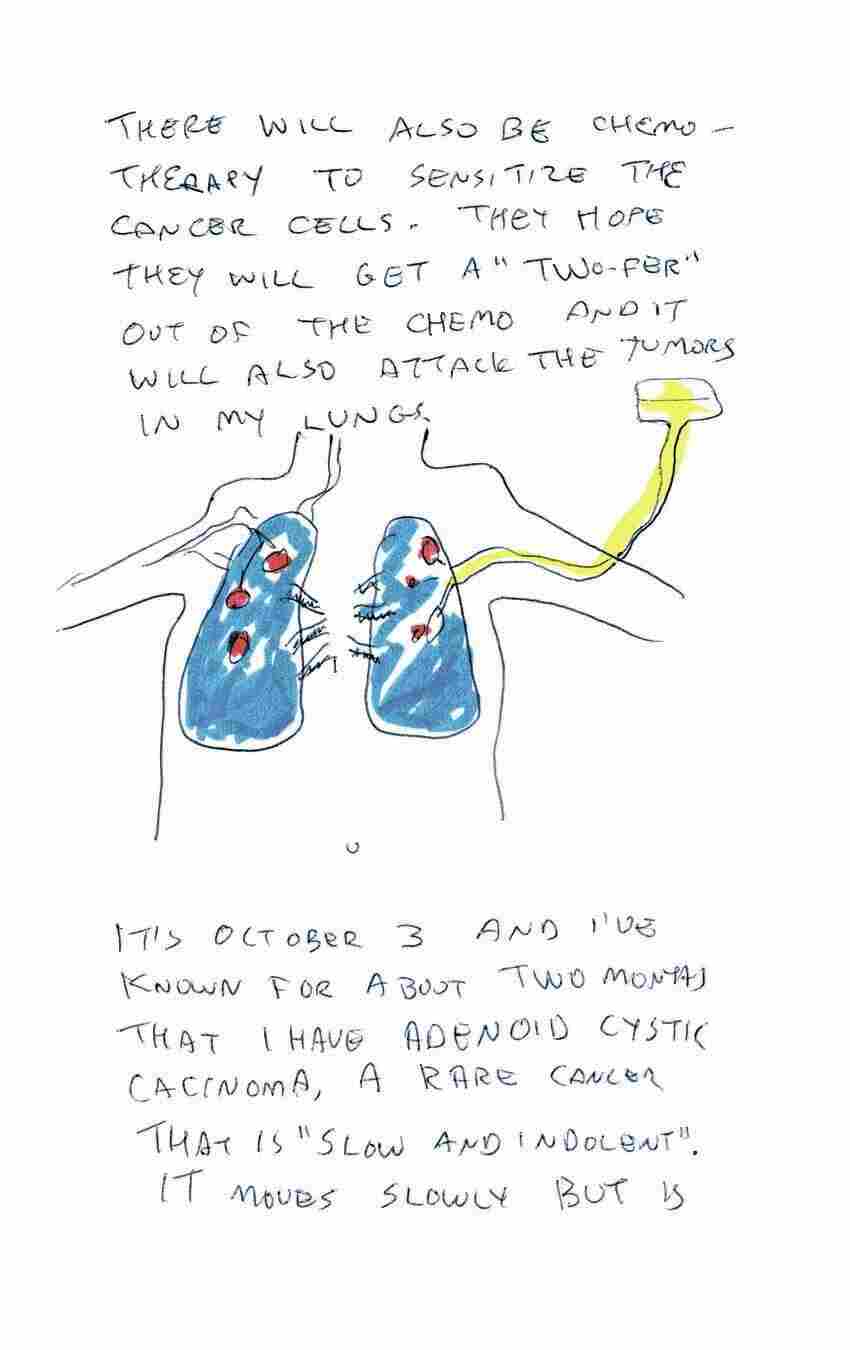 THERE WILL ALSO BE CHEMO-
THERAPY TO SENSITIZE THE
CANCER CELLS. THEY HOPE
THEY WILL GET A "TWO-FER"
OUT OF THE CHEMO AND IT
WILL ALSO ATTACK THE TUMORS
IN MY LUNGS.
IT'S OCTOBER 3 AND I'VE
KNOWN FOR ABOUT TWO MONTHS
THAT I HAVE ADENOID CYSTIC
CACINOMA, A RARE CANCER
THAT IS "SLOW AND INDOLENT".
IT MOVES SLOWLY BUT IS